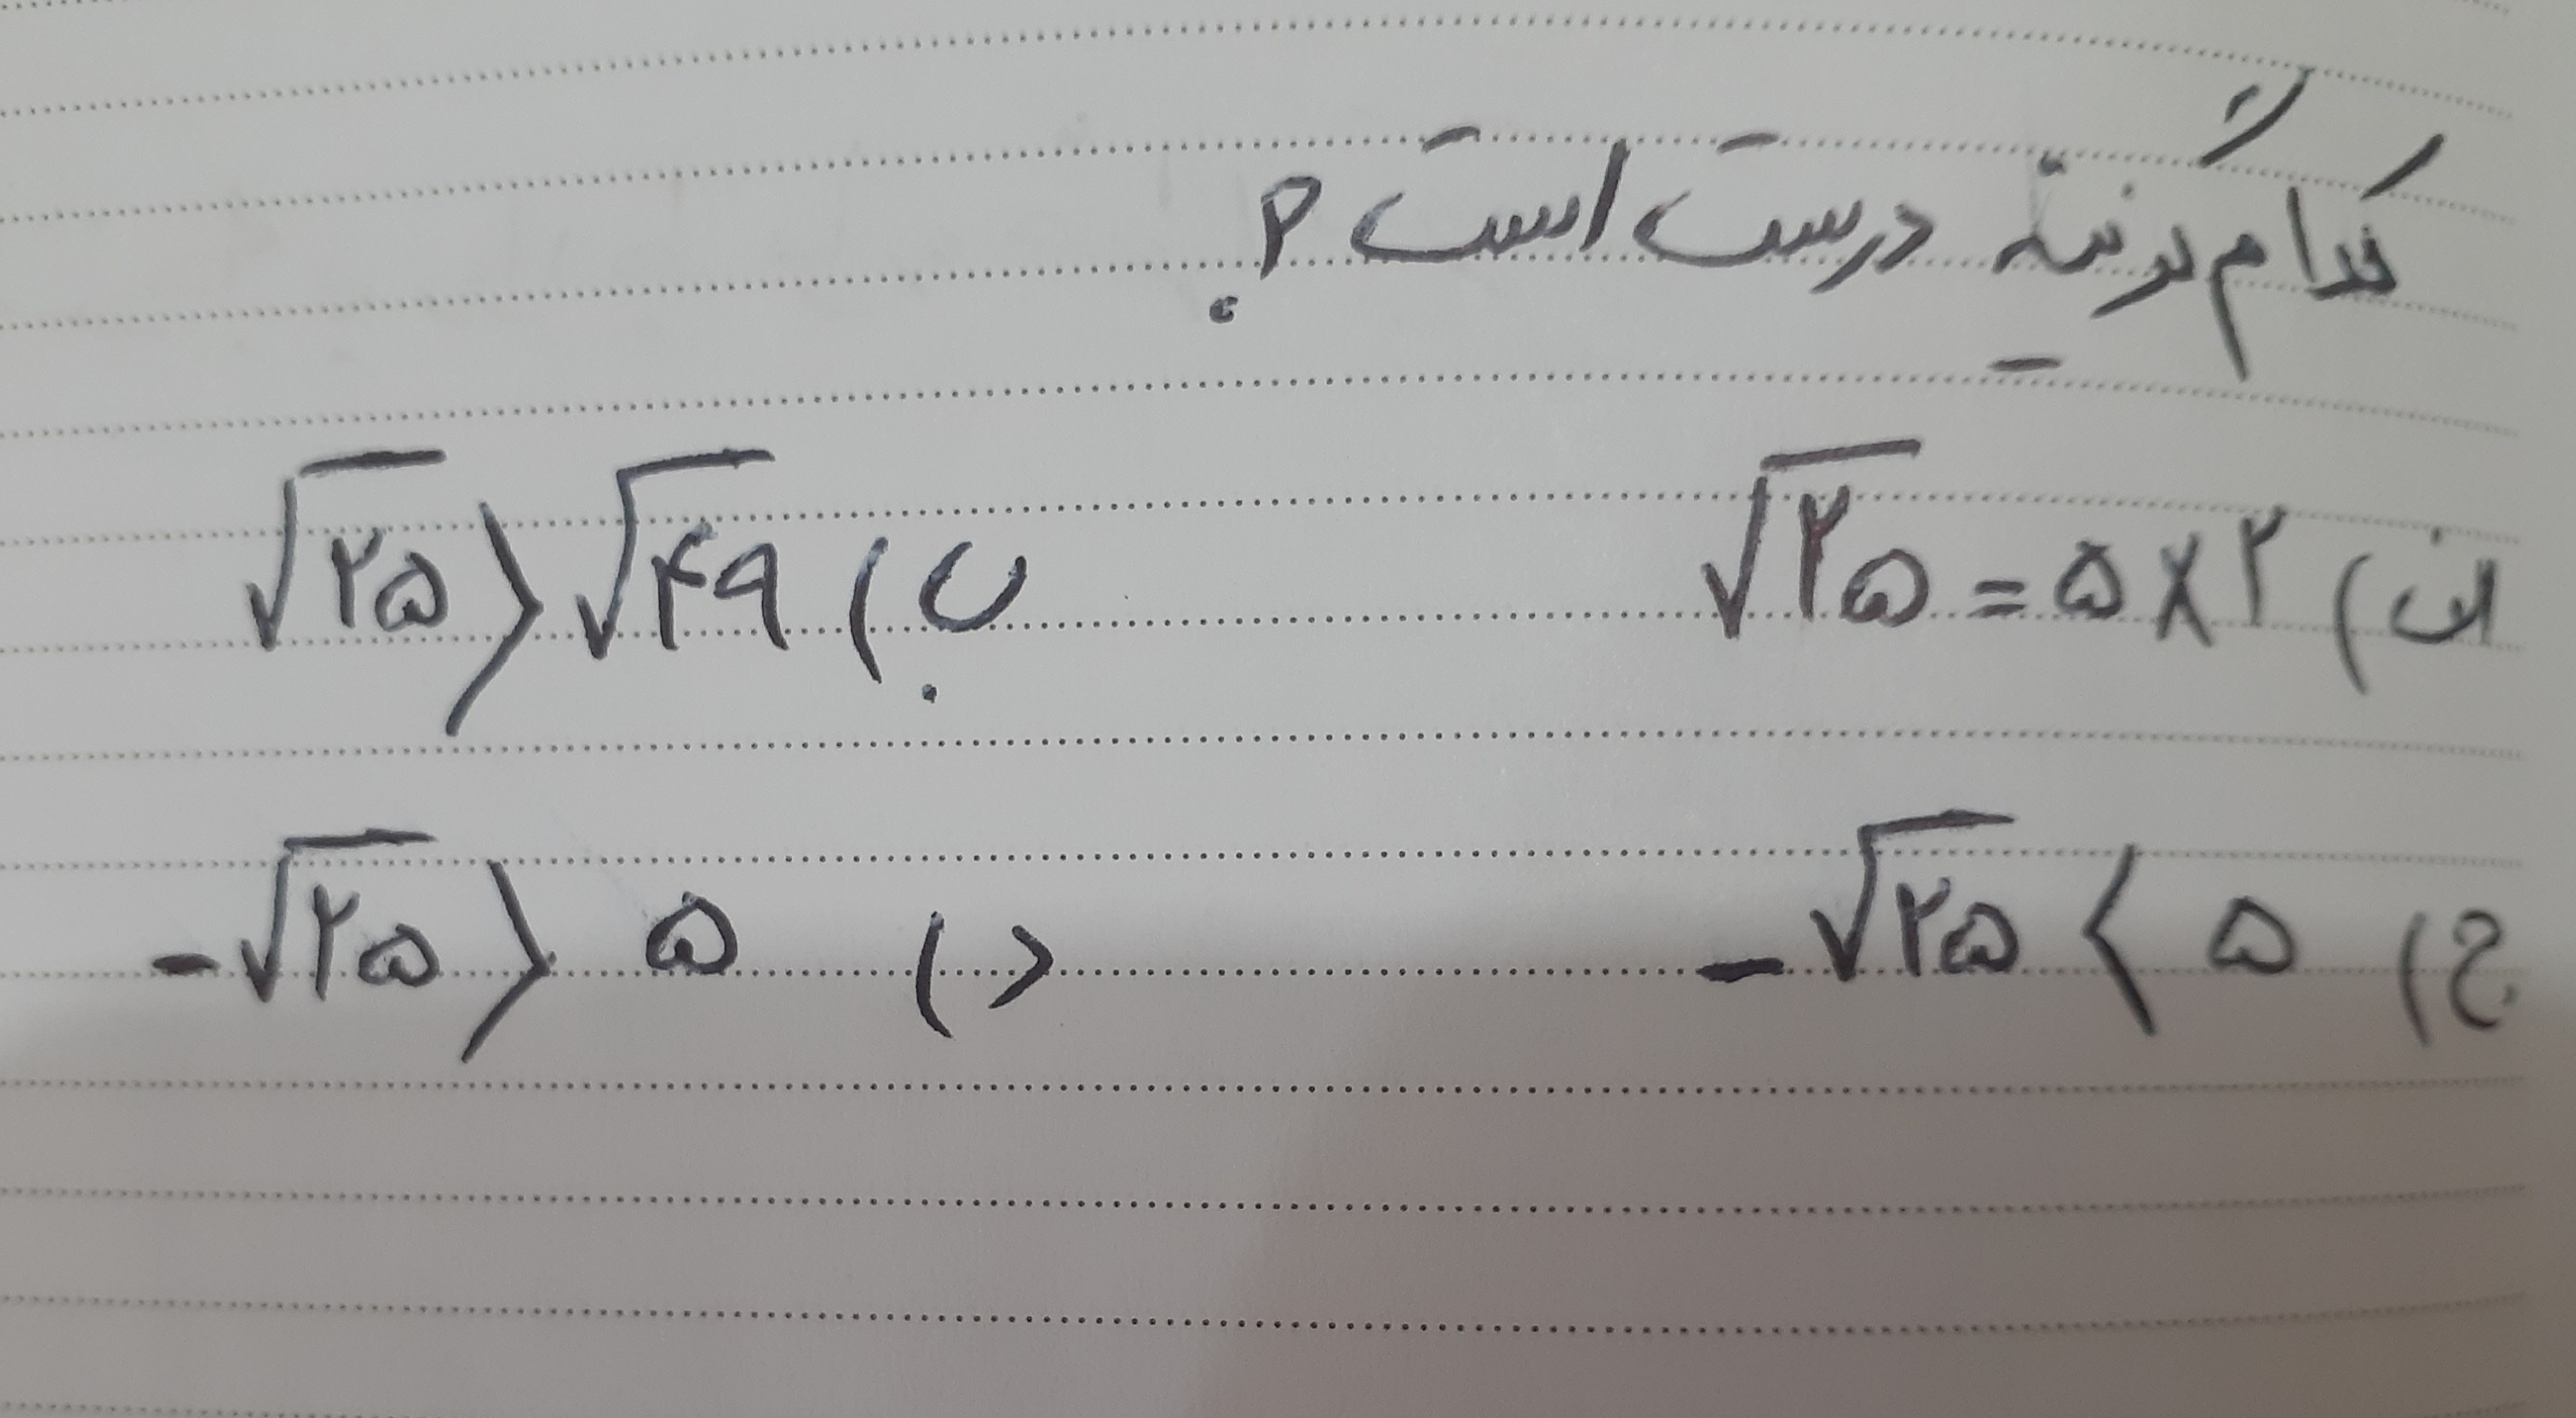 کدام گزینهٔ درست است؟
الف) √۲۵ = ۵ × ۲ ب) √۲۵ > √۴۹
ج) -√۲۵ < ۵ د) -√۲۵ > ۵